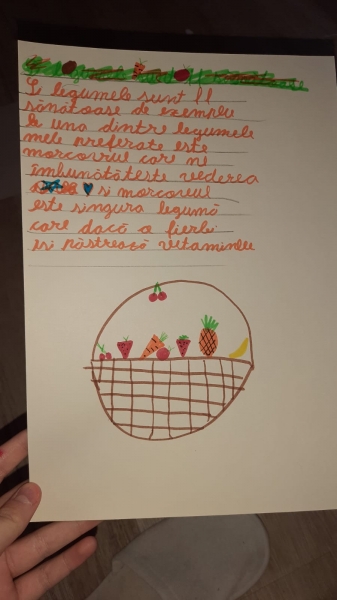 Și legumele sunt fl
sănătoase de exemplu
la una dintre legumele
mele preferate este
morcovul care ne
îmbunătăteste vederea
si morcovul
este singura legumă
care dacă o fierbi
isi păstrează vitaminele